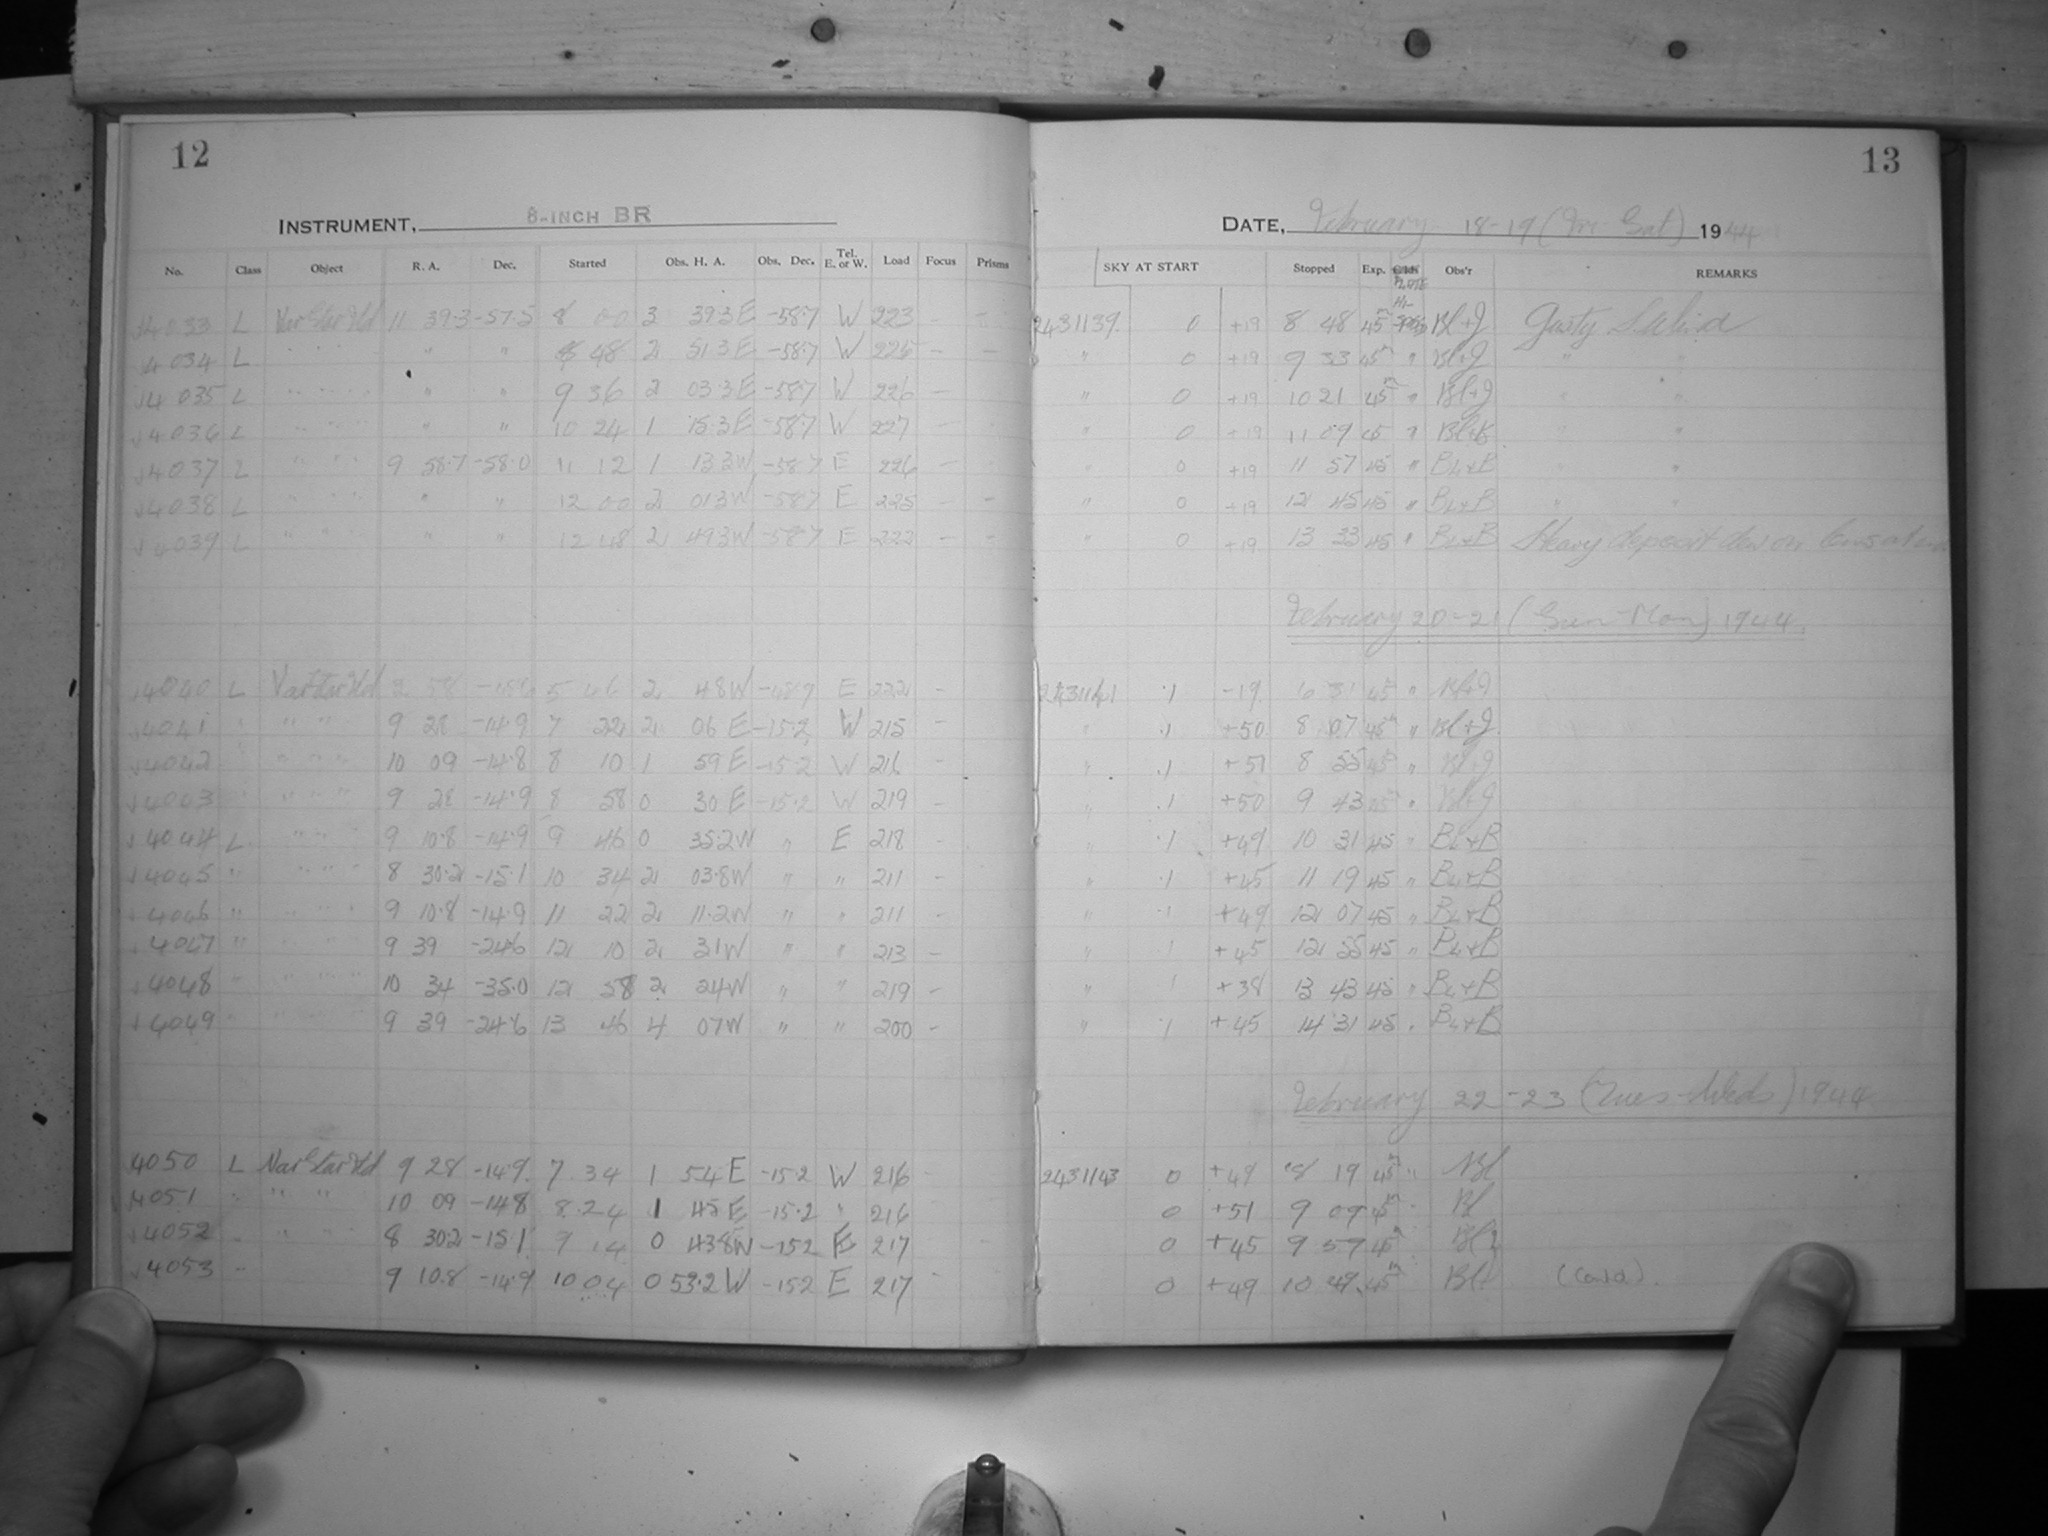 12
INSTRUMENT, 8-INCH BR
No. Class Object R. A. Dec. Started Obs. H. A. Obs. Dec. Tel. E. or W. Load Focus Prisms
14033 L Var Star Fld 11 39.3 -57.5 8 00 3 39.3E -58.7 W 223 - -
14034 L " " " " " 8 48 2 51.3E -58.7 W 225 - -
14035 L " " " " " 9 36 2 03.3E -58.7 W 226 -
14036 L " " " " " 10 24 1 15.3E -58.7 W 227 -
14037 L " " " 9 58.7 -58.0 11 12 1 13.3W -58.7 E 226 -
14038 L " " " " " 12 00 2 01.3W -58.7 E 225 - -
14039 L " " " " " 12 48 2 49.3W -58.7 E 222 - -
14040 L Var Star Fld 5 46 2 48W E 222 -
14041 " " " 9 28 -14.9 7 22 2 06 E -15.2 W 215 -
14042 " " " " 10 09 -14.8 8 10 1 59 E -15.2 W 216 -
14043 " " " " 9 28 -14.9 8 58 0 30 E -15.2 W 219 -
14044 L " " " 9 10.8 -14.9 9 46 0 35.2W " E 218 -
14045 " " " " 8 30.2 -15.1 10 34 2 03.8W " " 211 -
14046 " " " " 9 10.8 -14.9 11 22 2 11.2W " " 211 -
14047 " " " " 9 39 -24.6 12 10 2 31W " " 213 -
14048 " " " " 10 34 -35.0 12 58 2 24W " " 219 -
14049 " " " " 9 39 -24.6 13 46 4 07W " " 200 -
14050 L Var Star Fld 9 28 -14.9 7 34 1 54 E -15.2 W 216 -
14051 " " " 10 09 -14.8 8.24 1 45 E -15.2 " 216
14052 " " " 8 30.2 -15.1 9 14 0 43.8W -15.2 E 217 -
14053 " 9 10.8 -14.9 10 04 0 53.2 W -15.2 E 217 -
13
DATE, February 18-19 (Fri-Sat) 1944
SKY AT START Stopped Exp. PLATE Obs'r REMARKS
2431139 0 +19 8 48 45m Bl+J Gusty S. Wind
" 0 +19 9 33 45m " Bl+J " "
" 0 +19 10 21 45m " Bl+J " "
" 0 +19 11 09 45 " Bl+B " "
" 0 +19 11 57 45 " Bl+B " "
" 0 +19 12 45 45 " Bl+B " "
" 0 +19 13 33 45 " Bl+B Heavy deposit dew on lens at end
February 20-21 (Sun-Mon) 1944
2431141 .1 -19 6 31 45 " Bl+J
" .1 +50 8 07 45m " Bl+J
" .1 +51 8 55 45m " Bl+J
" .1 +50 9 43 45m " Bl+J
" .1 +49 10 31 45 " Bl+B
" .1 +45 11 19 45 " Bl+B
" .1 +49 12 07 45 " Bl+B
" .1 +45 12 55 45 " Bl+B
" .1 +38 13 43 45 " Bl+B
" .1 +45 14 31 45 " Bl+B
February 22-23 (Tues-Weds) 1944
2431143 0 +49 8 19 45m " Bl
0 +51 9 09 45m " Bl
0 +45 9 59 45m
0 +49 10 49 45m (Contd).